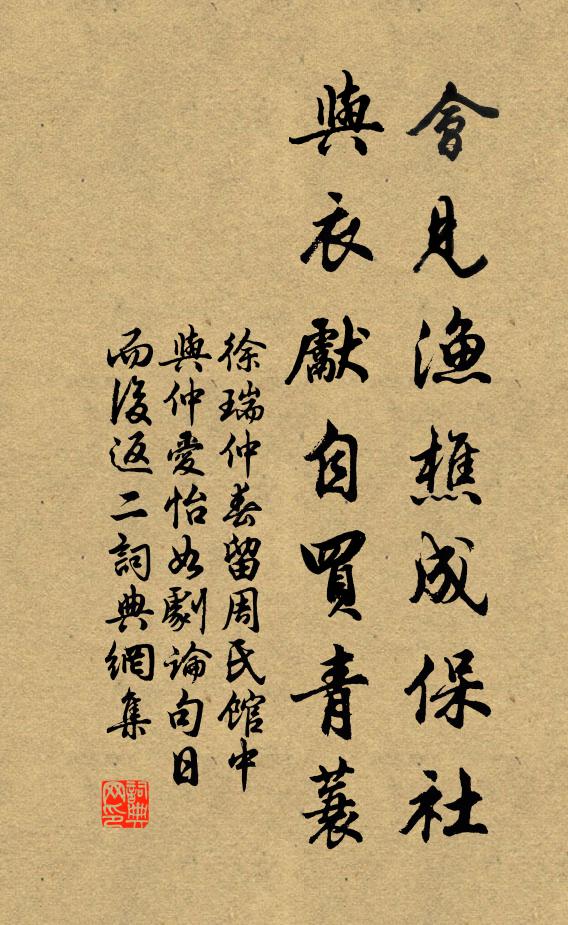 會見漁樵成保社
與衣獻自買青蓑
徐瑞仲春留周民館中
與仲愛怡如劇論句日
而後返二詞典網集
詞典网印